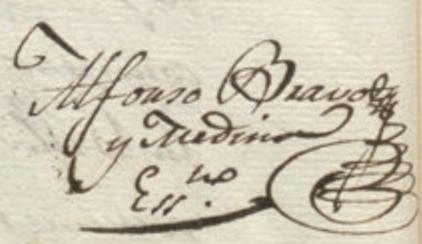 Alfonso Bravo
y Medina
Ess.no